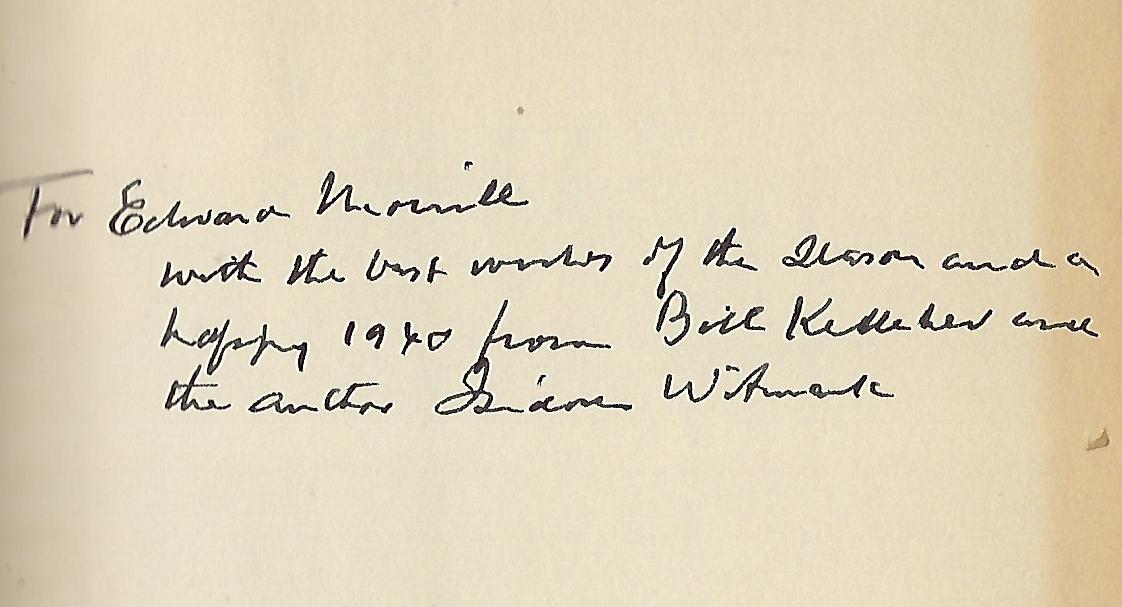 For Edward Morrill
with the best wishes of the Season and a
happy 1940 from Bill Kelleher and
the author Isidore Witmark